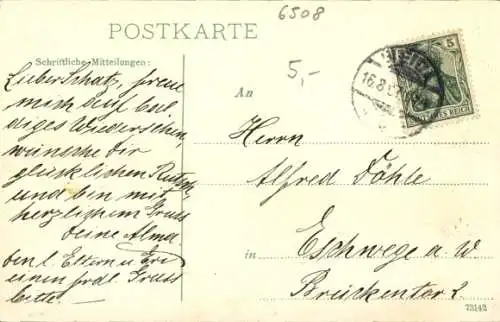 6508
POSTKARTE
Schriftliche Mitteilungen:
5,-
5
DEUTSCHES REICH
16.8.
An
Lieber Schatz, freue
mich auf bal
diges Wiedersehen,
wünsche dir
glücklichen Rutsch
und bin mit
herzlichem Gruss
deine Alma
den l. Eltern u
einen frdl. Gruss
bitte.
Herrn
Alfred Döhle
in
Eschwege a W
Brückentor 2.
73142